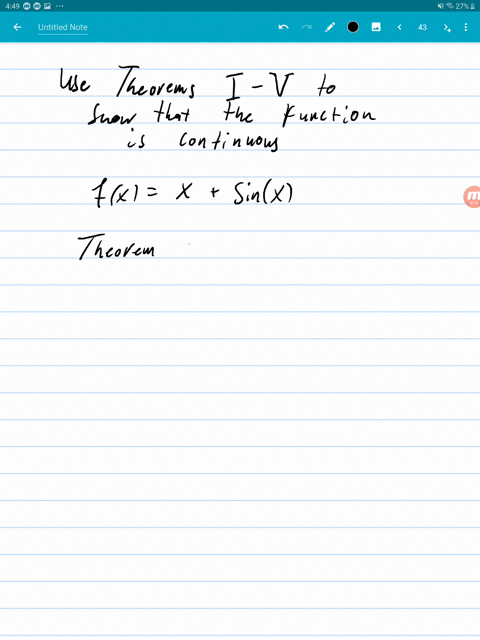 4:49
27%
Untitled Note
43
Use Theorems I - V to
show that the function
is continuous
f(x) = x + Sin(x)
Theorem